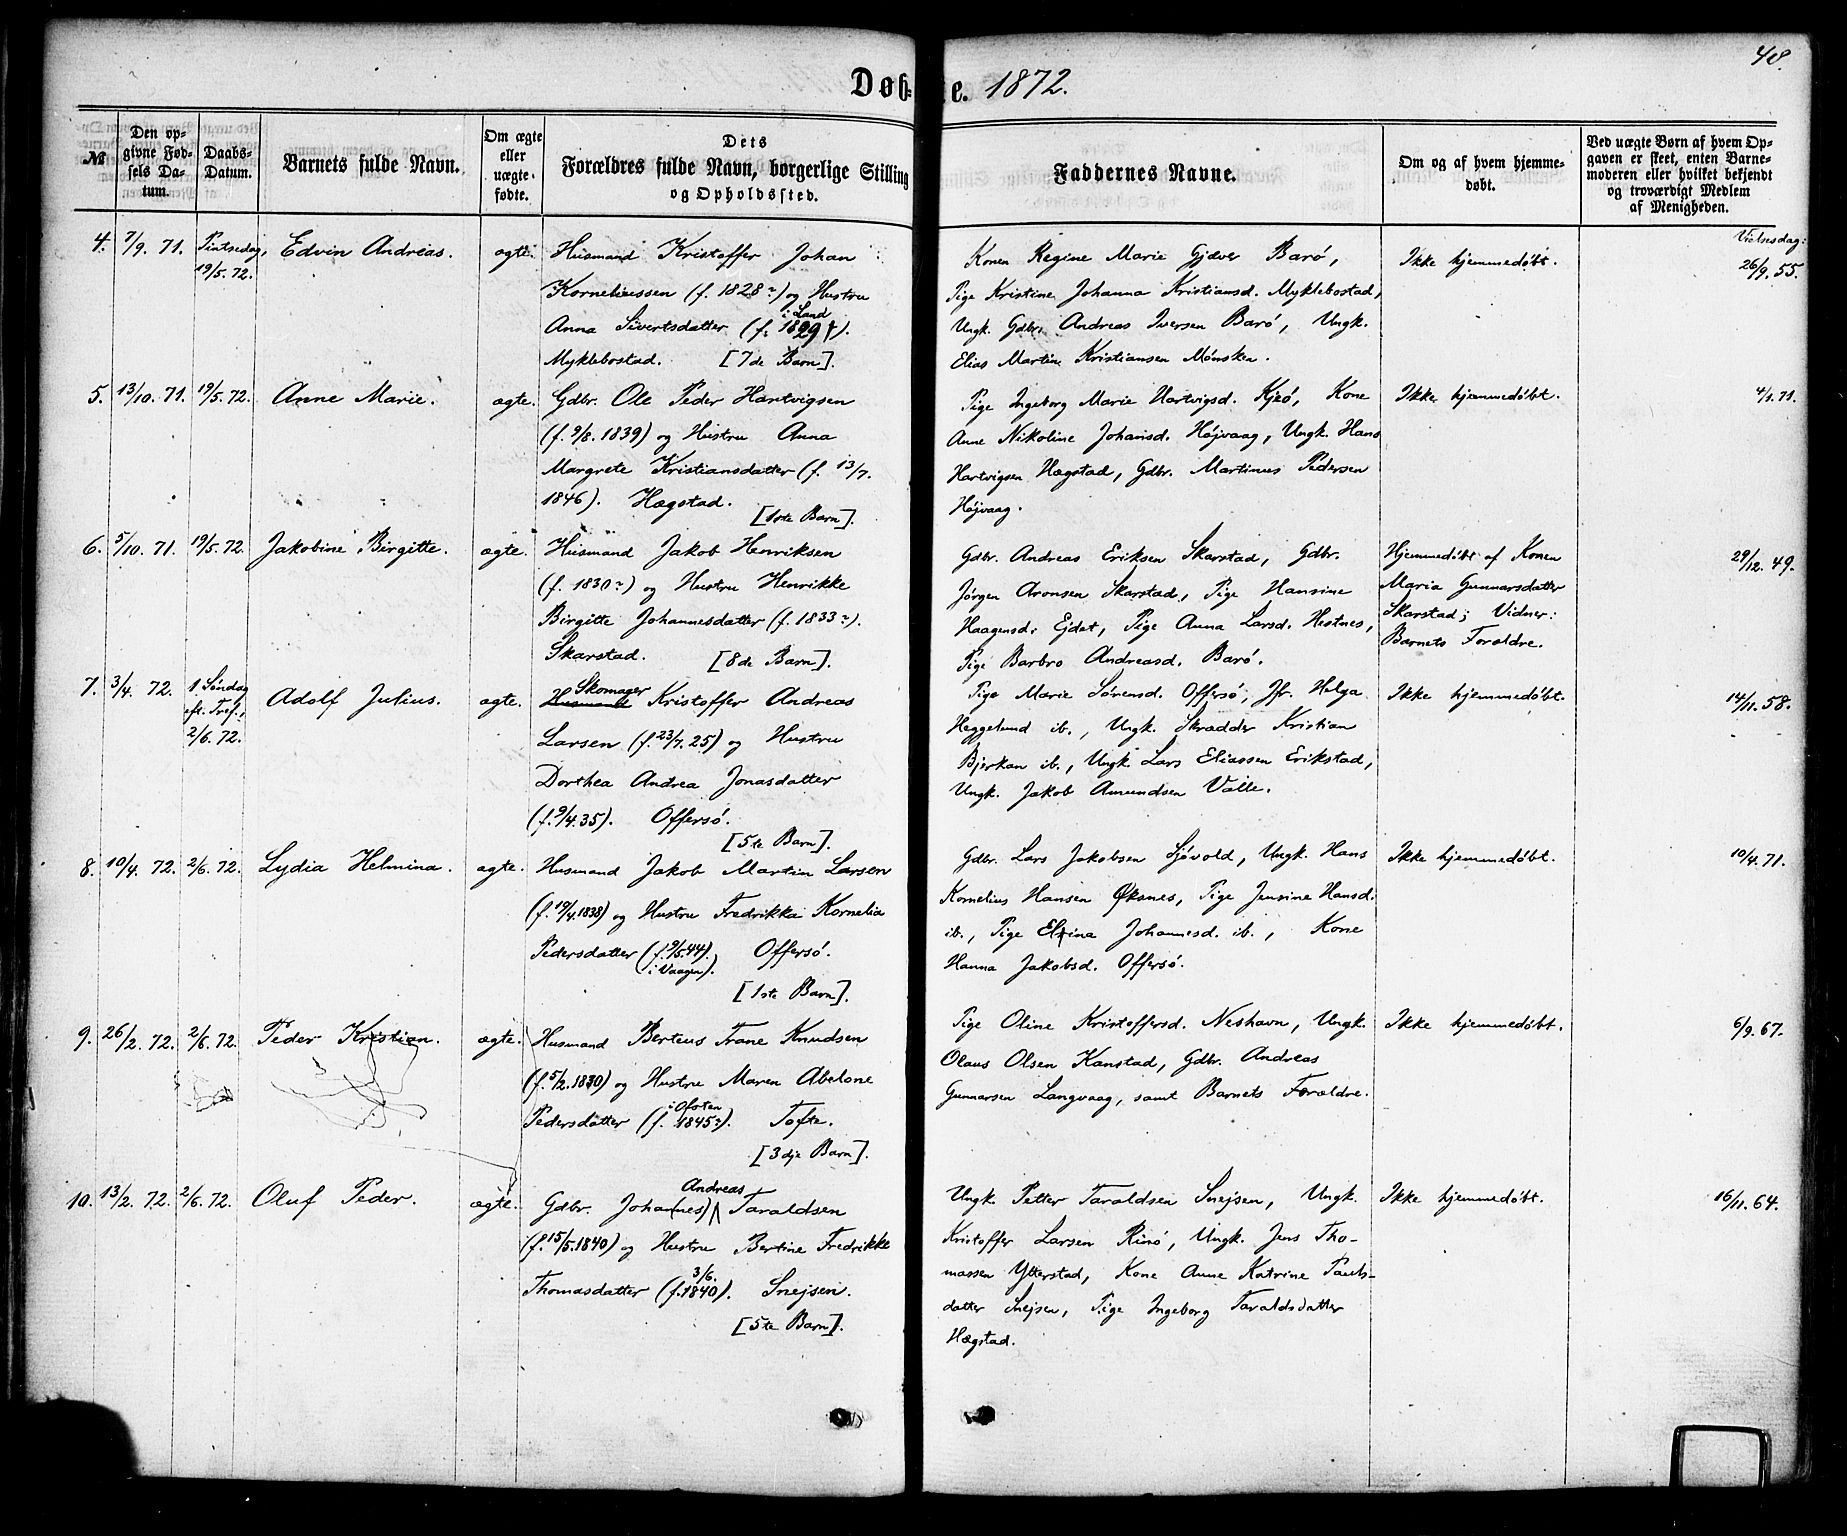 48.
Døbte. 1872.
№
Den opgivne Fødsels Datum.
Daabs-Datum.
Barnets fulde Navn.
Om ægte eller uægte-fødte.
Dets Forældres fulde Navn, borgerlige Stilling og Opholdssted.
Faddernes Navne.
Om og af hvem hjemmedøbt.
Ved uægte Børn af hvem Opgaven er skeet, enten Barnemoderen eller hvilket bekjendt og troværdigt Medlem af Menigheden.
Vielsesdag:
4. 7/9. 71. Pintsedag, 19/5. 72. Edvin Andreas. ægte.
Husmand Kristoffer Johan
Korneliussen (f. 1828?) og Hustru
Anna Sivertsdatter (f. i Land 1829).
Myklebostad. [7de Barn].
Konen Regine Marie Gjæver Barø,
Pige Kristine Johanna Kristiansd. Myklebostad,
Ungk. Gdbr. Andreas Iversen Barø, Ungk.
Elias Martin Kristiansen Mønsken.
Ikke hjemmedøbt.
26/9. 55.
5. 13/10. 71. 19/5. 72. Anne Marie. ægte.
Gdbr. Ole Peder Hartvigsen
(f. 9/8. 1839) og Hustru Anna
Margrete Kristiansdatter (f. 13/7.
1846). Hægstad.
[1ste Barn].
Pige Ingeborg Marie Hartvigsd. Kjeø, Kone
Anne Nikoline Johansd. Højvaag, Ungk. Hans
Hartvigsen Hægstad, Gdbr. Martinus Pedersen
Højvaag.
Ikke hjemmedøbt.
4/1. 71.
6. 5/10. 71. 19/5. 72. Jakobine Birgitte. ægte.
Husmand Jakob Henriksen
(f. 1830?) og Hustru Henrikke
Birgitte Johannesdatter (f. 1833?).
Skarstad. [8de Barn].
Gdbr. Andreas Eriksen Skarstad, Gdbr.
Jørgen Aronsen Skarstad, Pige Hansine
Haagensd. Ejdet, Pige Anna Larsd. Hestnes,
Pige Barbro Andreasd. Barø.
Hjemmedøbt af Konen
Maria Gunnarsdatter
Skarstad; Vidner:
Barnets Forældre.
29/12. 49.
7. 3/4. 72. 1. Søndag eft. Tref., 2/6. 72. Adolf Julius. ægte.
Skomager
Husmand Kristoffer Andreas
Larsen (f. 23/7. 25) og Hustru
Dorthea Andrea Jonasdatter
(f. 9/4. 35). Offersø.
[5te Barn].
Pige Marie Sørensd. Offersø, Jfr. Helga
Heggelund ib., Ungk. Skrædder Kristian
Bjerkan ib., Ungk. Lars Eliassen Erikstad,
Ungk. Jakob Amundsen Valle.
Ikke hjemmedøbt.
14/11. 58.
8. 10/4. 72. 2/6. 72. Lydia Helmina. ægte.
Husmand Jakob Martin Larsen
(f. 19/4. 1838) og Hustru Fredrikka Kornelia
Pedersdatter (f. 9/5. 44). Offersø.
i Vaagen).
[1ste Barn].
Gdbr. Lars Jakobsen Sjøvold, Ungk. Hans
Kornelius Hansen Øksnes, Pige Jensine Hansd.
ib., Pige Elina Johannesd. ib., Kone
Hanna Jakobsd. Offersø.
Ikke hjemmedøbt.
10/4. 71.
9. 26/2. 72. 2/6. 72. Peder Kristian. ægte.
Husmand Berteus Trane Knudsen
(f. 5/2. 1830) og Hustru Maren Abelone
Pedersdatter (f. i Ofoten 1845?). Tofte.
[3dje Barn].
Pige Oline Kristoffersd. Neshavn, Ungk.
Olaus Olsen Kanstad, Gdbr. Andreas
Gunnarsen Langvaag, samt Barnets Forældre.
Ikke hjemmedøbt.
6/9. 67.
10. 13/2. 72. 2/6. 72. Oluf Peder. ægte.
Andreas
Gdbr. Johan(nes) Taraldsen
(f. 15/5. 1840) og Hustru Bertine Fredrikke
Thomasdatter (f. 3/6. 1840). Snejsen.
[5te Barn].
Ungk. Petter Taraldsen Snejsen, Ungk.
Kristoffer Larsen Rinø, Ungk. Jens Tho-
massen Ytterstad, Kone Anne Katrine Pauls-
datter Snejsen, Pige Ingeborg Taraldsdatter
Hægstad.
Ikke hjemmedøbt.
16/11. 64.